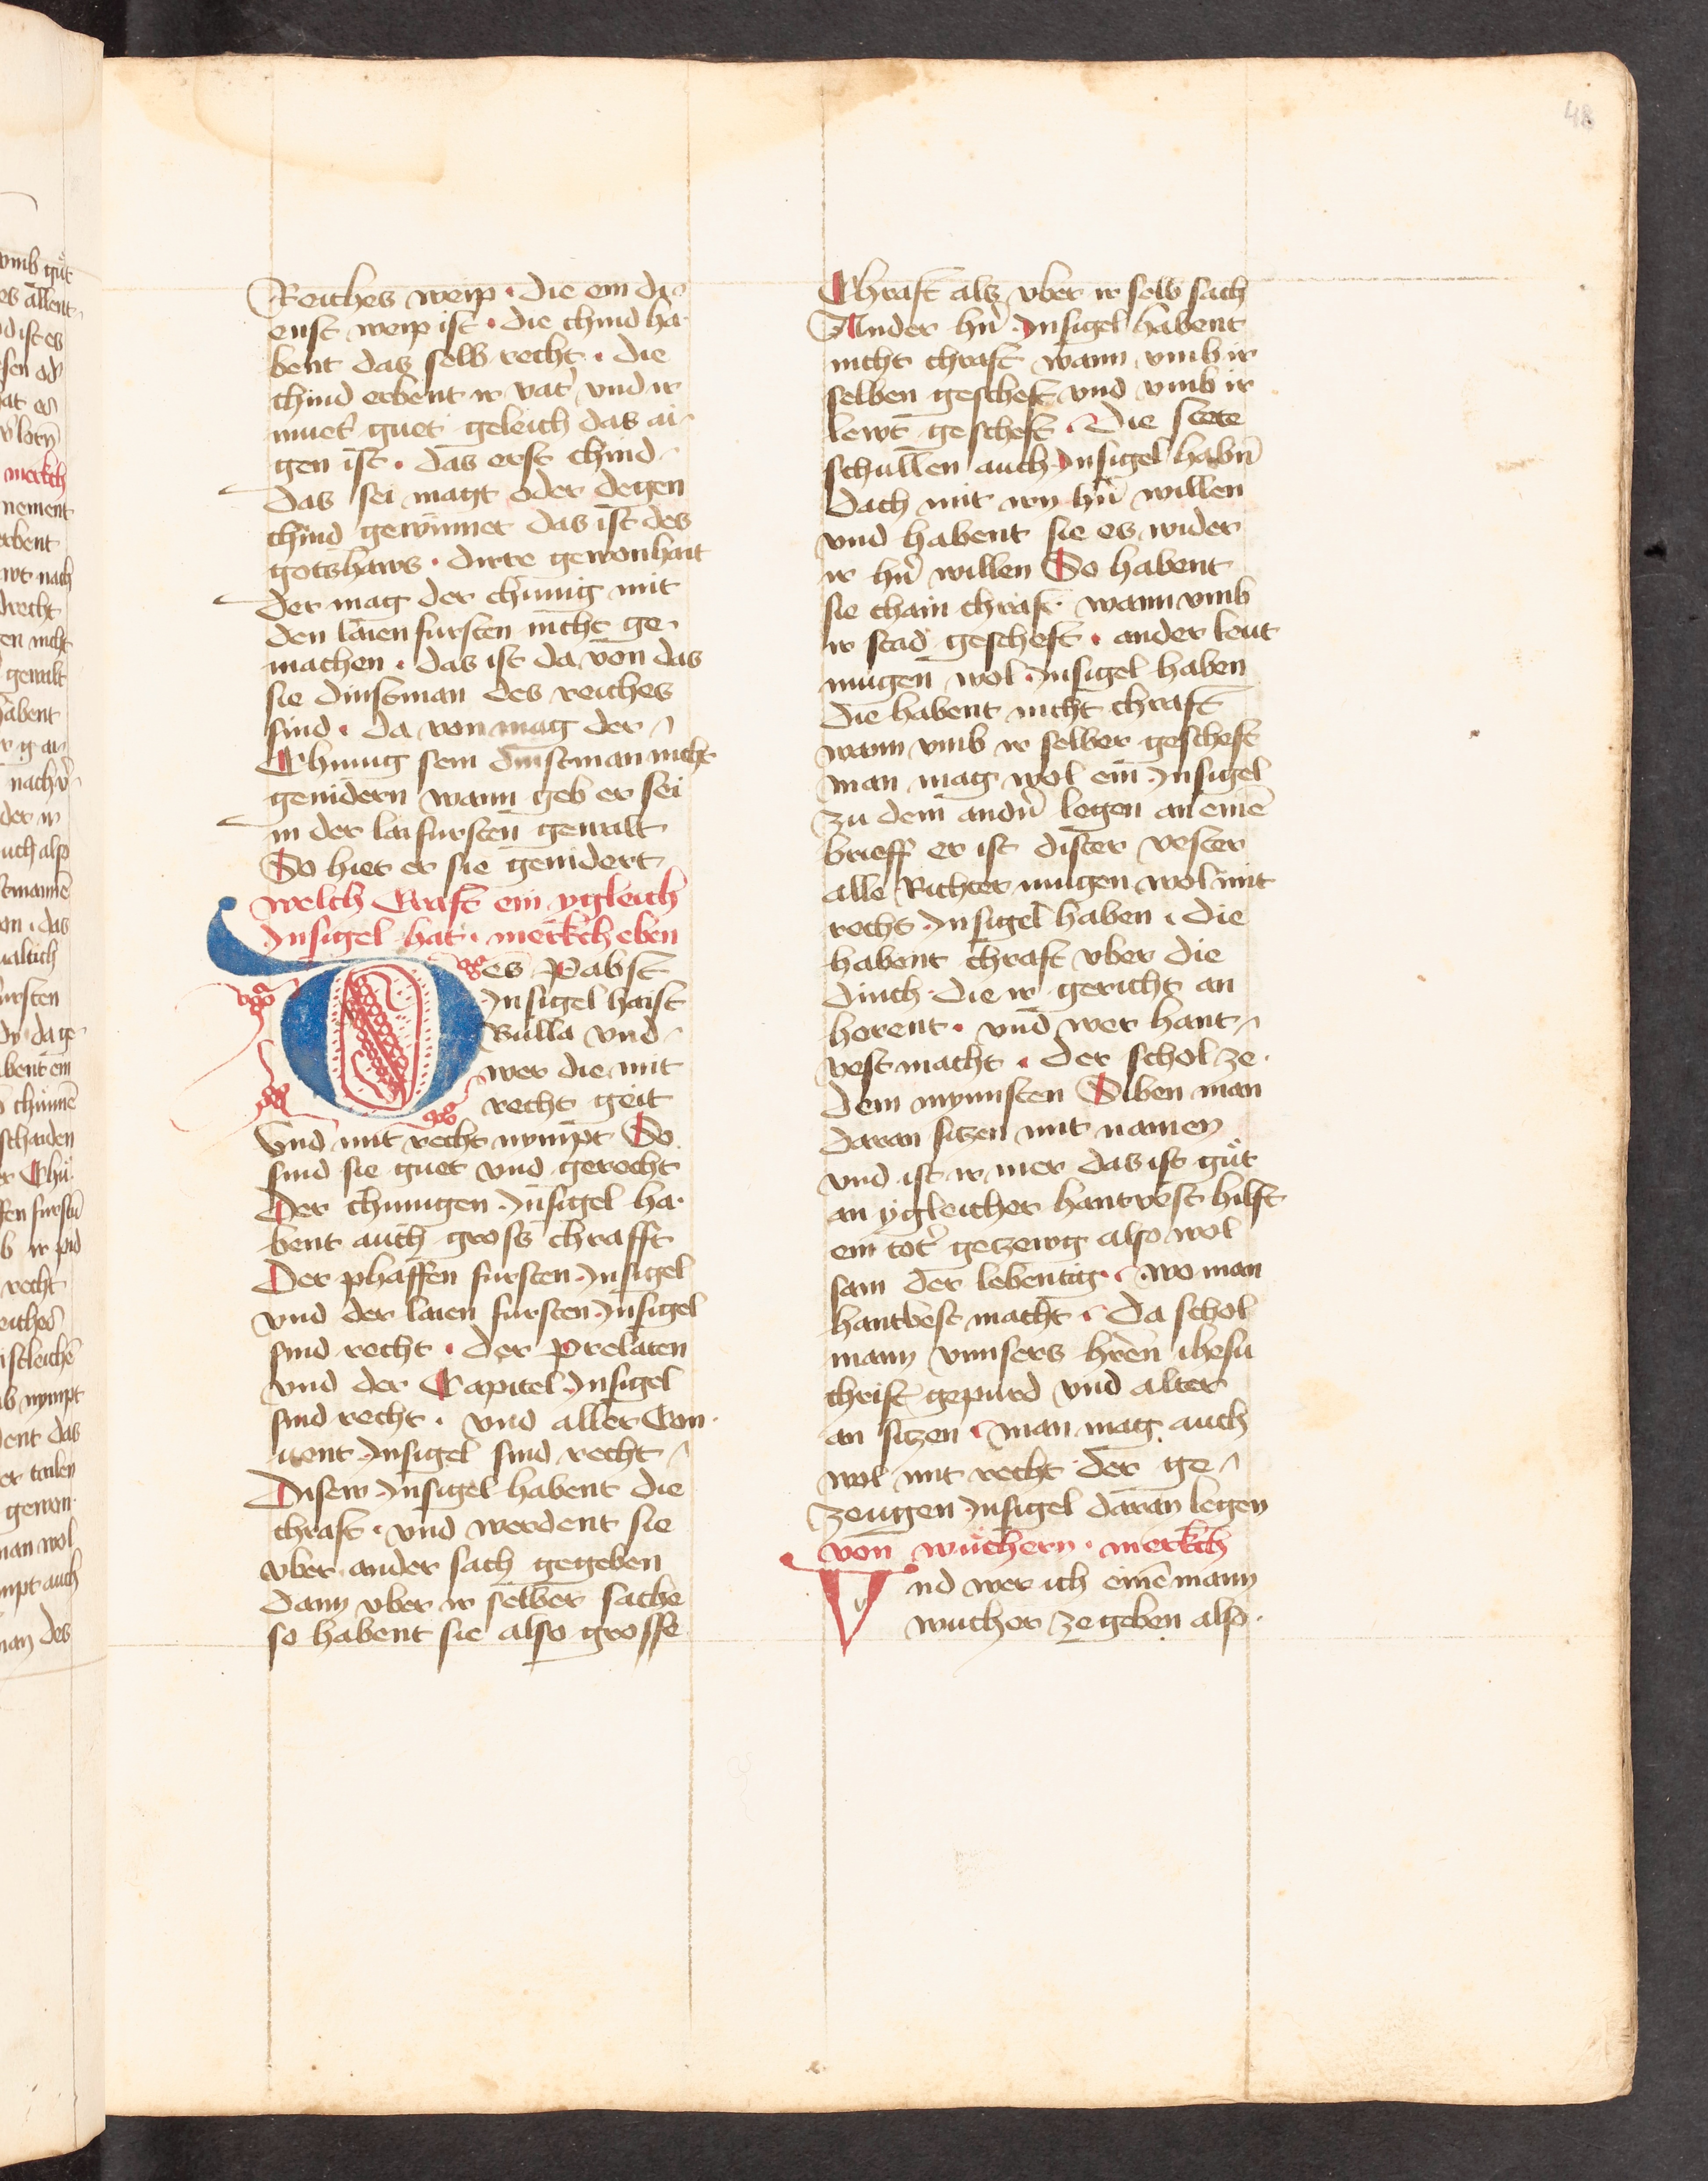 48
Reiches weip · die ein di-
enst weip ist · die chind ha-
bent das selb recht · die
chind erbent ir vat̕ vnd ir
muet̕ guet geleich das ai-
gen ist · das erst chind
das sei magt oder degen
chind gewinnet das ist des
gotshaws · dirre gewonhait
der mag der chunig mit
den laien fursten nicht ge-
machen · das ist da von das
sie dinstman des reiches
sind · da von mag der
Chunig sein dinstman nicht
genidern wann geb er sei
in der lai fursten gewalt
So hiet er sie genidert
welch Craft ein ygleich̕
Insigel hat · merkch eben
Des Pabst
Insigel haist
Bulla vnd
wer die mit
recht geit
vnd mit recht nympt So
sind sie guet vnd gerecht
Der chunigen Insigel ha-
bent auch gross chrafft
Der phaffen fursten Insigel
vnd der laien fursten Insigel
sind recht · der Prelaten
vnd der Capitel Insigel
sind recht · vnd aller Con-
uent Insigel sind recht
Disew Insigel habent die
chraft · vnd werdent sie
vber ander sach gegeben
dann vber ir selber sache
so habent sie also grosse
Chraft als vber ir selb sach
Ander hn̄ Insigel habent
nicht chraft wann vmb ir
selben gescheft vnd vmb ir
lewt gescheft · Die stete
schullen auch Insigel habn̄
dach mit irn hn̄ willen
vnd habent sie es wider
ir hn̄ willen So habent
sie chain chraft wann vmb
ir stad gescheft · ander leut
mugen wol Insigel haben
die habent nicht chraft
wann vmb ir selber gescheft
man mag wol ein Insigel
zu dem andn̄ legen an einē
brieff er ist dister vester
alle Richter mugen wol mit
recht Insigel haben · die
habent chraft vber die
dinch die ir gericht an
horent · vnd wer hant-
vest macht · der schol ze
dem mynnsten Siben man
daran siczen mit namen
vnd ist ir mer das ist gůt
an ygleicher hantvest hilft
ein tot̕ geczewg also wol
sam der lebentig · wo man
hantvest macht · da schol
mann vnnsers hren ihesu
christ gepurd vnd alter
an siczen · man mag auch
wol mit recht der ge-
zeugen Insigel daran legen
von wuchern · merkch
Vnd wer ich einē mann
wucher ze geben also